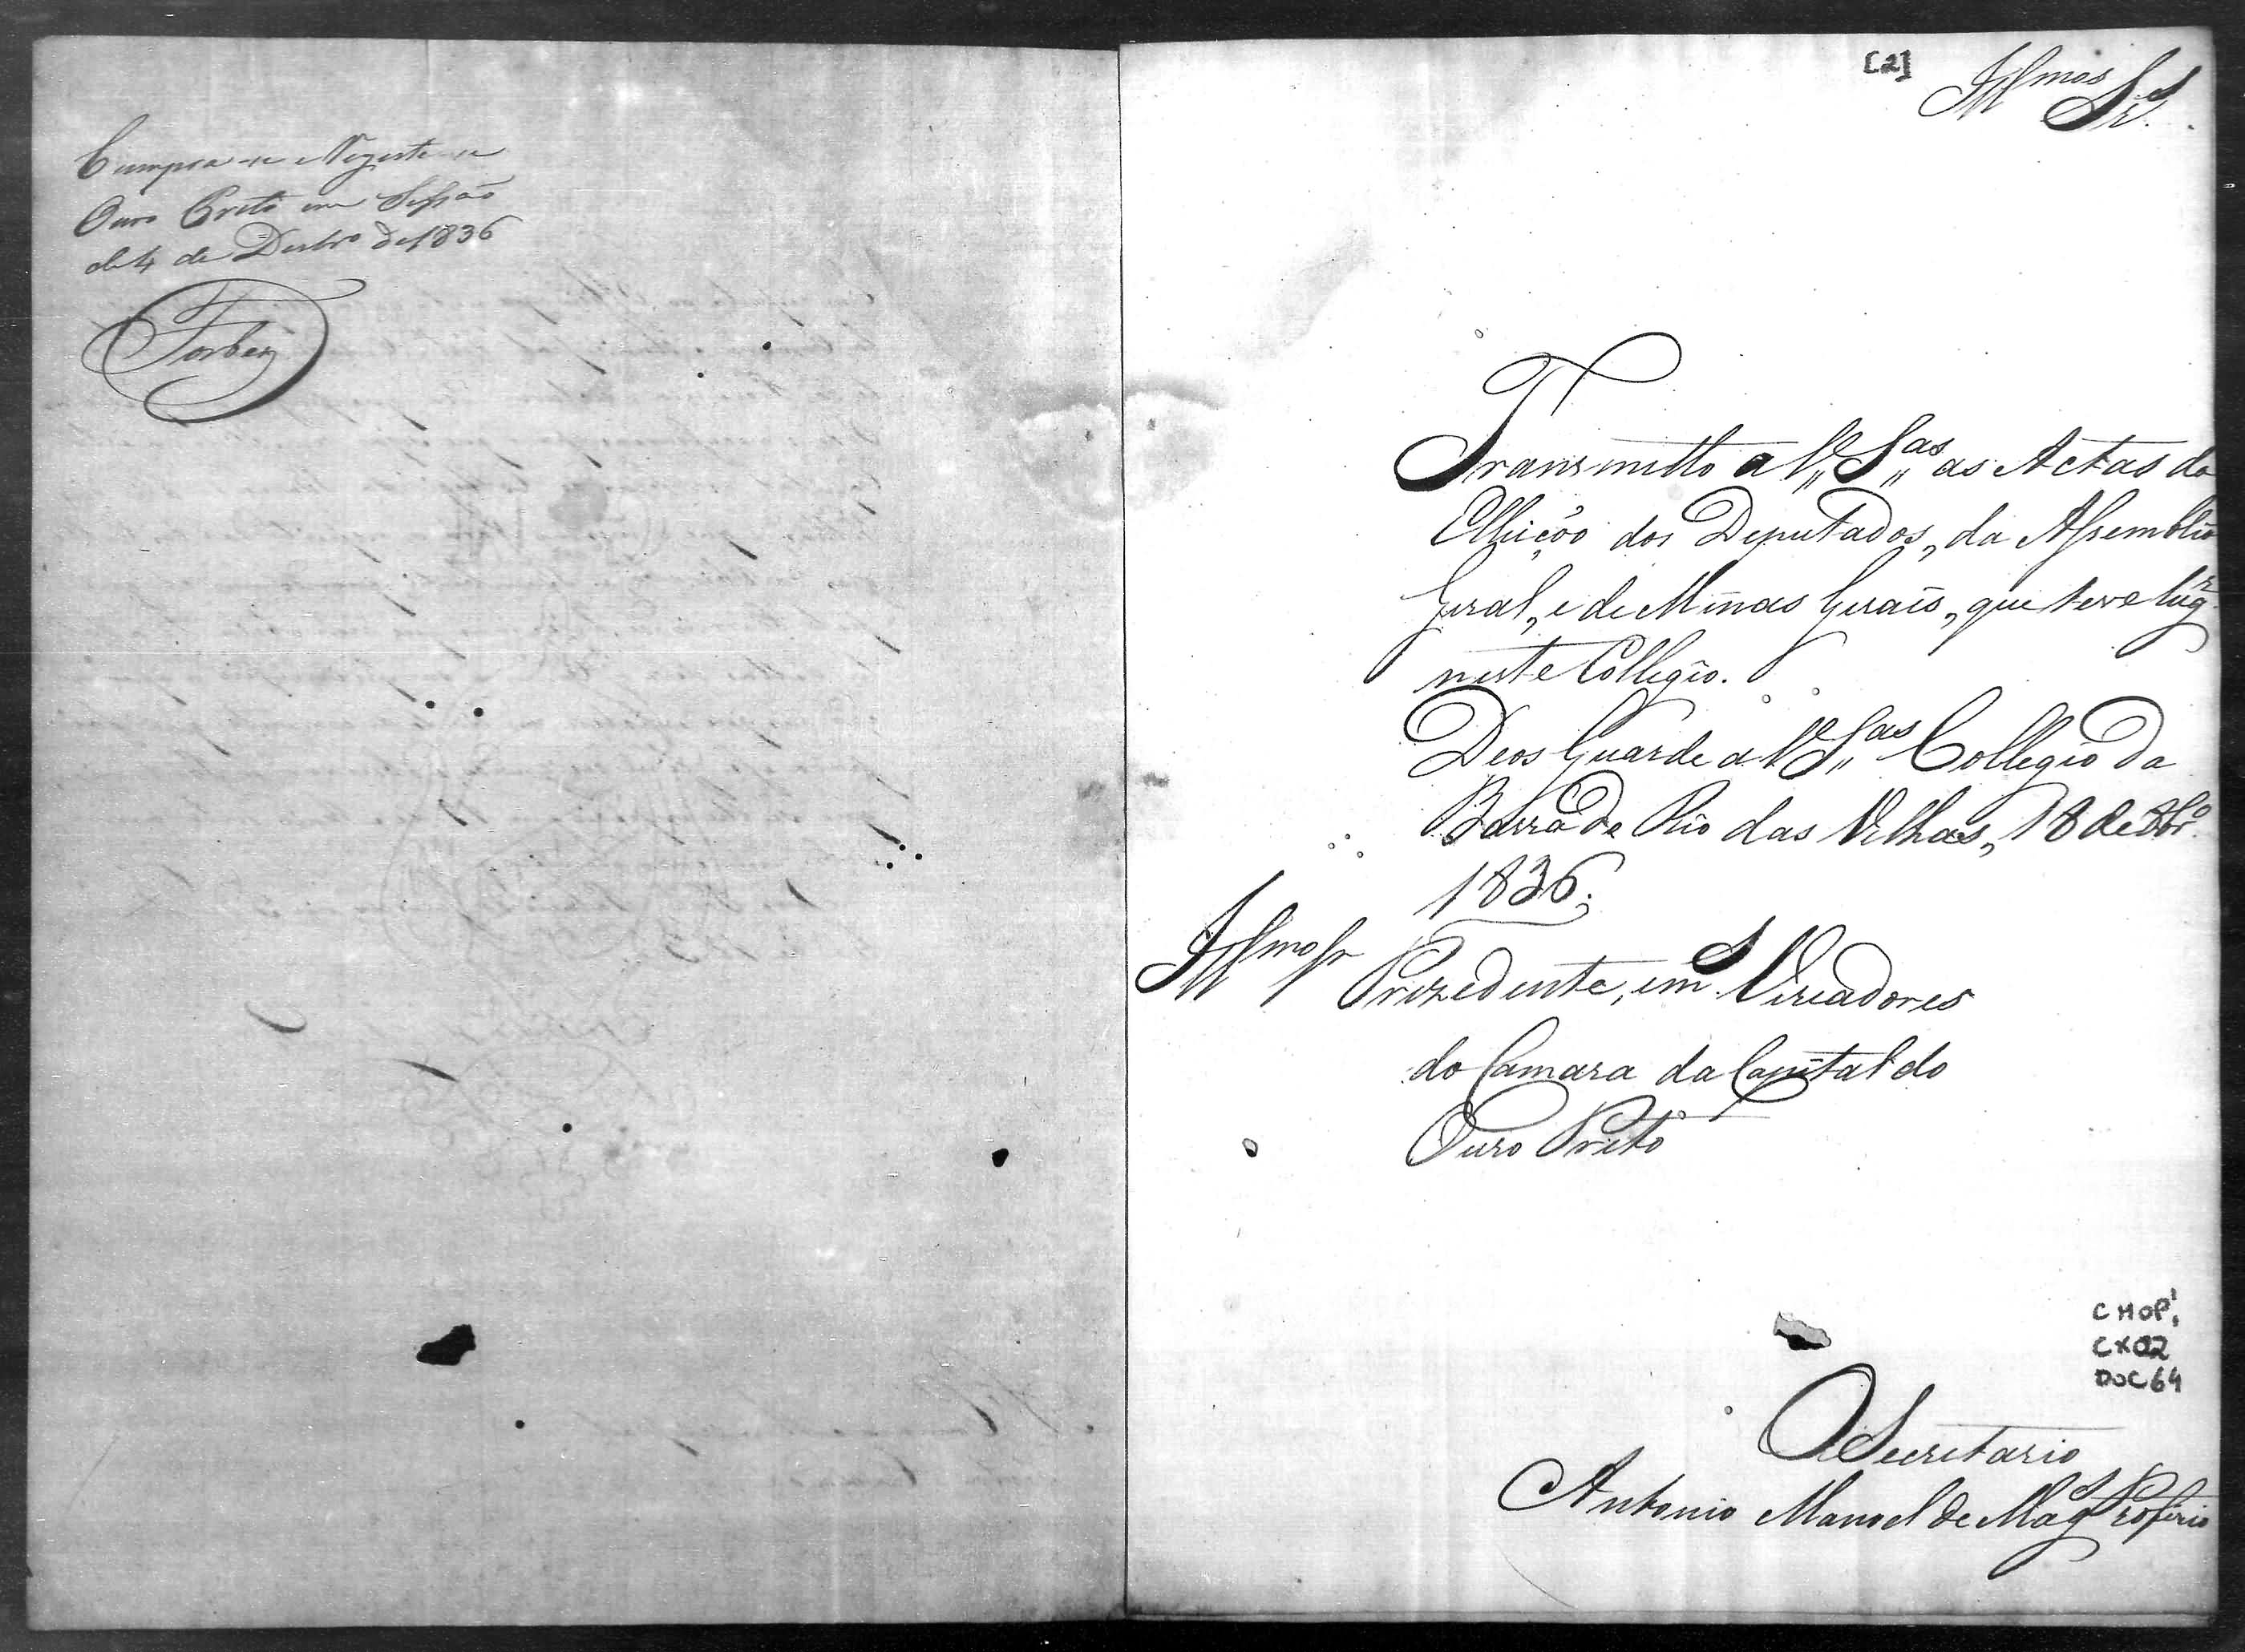 Cumpra-se e Registe-se
Ouro Preto em Sessão
de 4 de Dezbro de 1836
[2]
Illmos Srs.
Transmitto a V,, S,,as as Actas da
Elleição dos Deputados, da Assemblea
Geral, e de Minas Geraes, que teve lugr
neste Collegio.
Deos Guarde a V S,,as Collegio da
Barra do Rio das Velhas, 18 de 8brº
1836.
Illmo Sr Prezedente, em S. Vereadores
do Camara da Capital do
Ouro Preto
CMOP
CX02
DOC64
O Secretario
Antonio Manoel de Mags